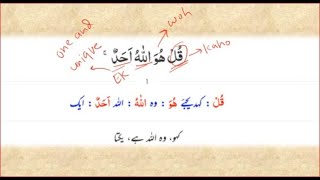 one and unique
woh
kaho
Ek
قُلْ هُوَ اللّٰهُ اَحَدٌ ۚ
1
قُلْ : کہہ دیجئے هُوَ : وہ اللّٰهُ : اللہ اَحَدٌ : ایک
کہو، وہ اللہ ہے، یکتا